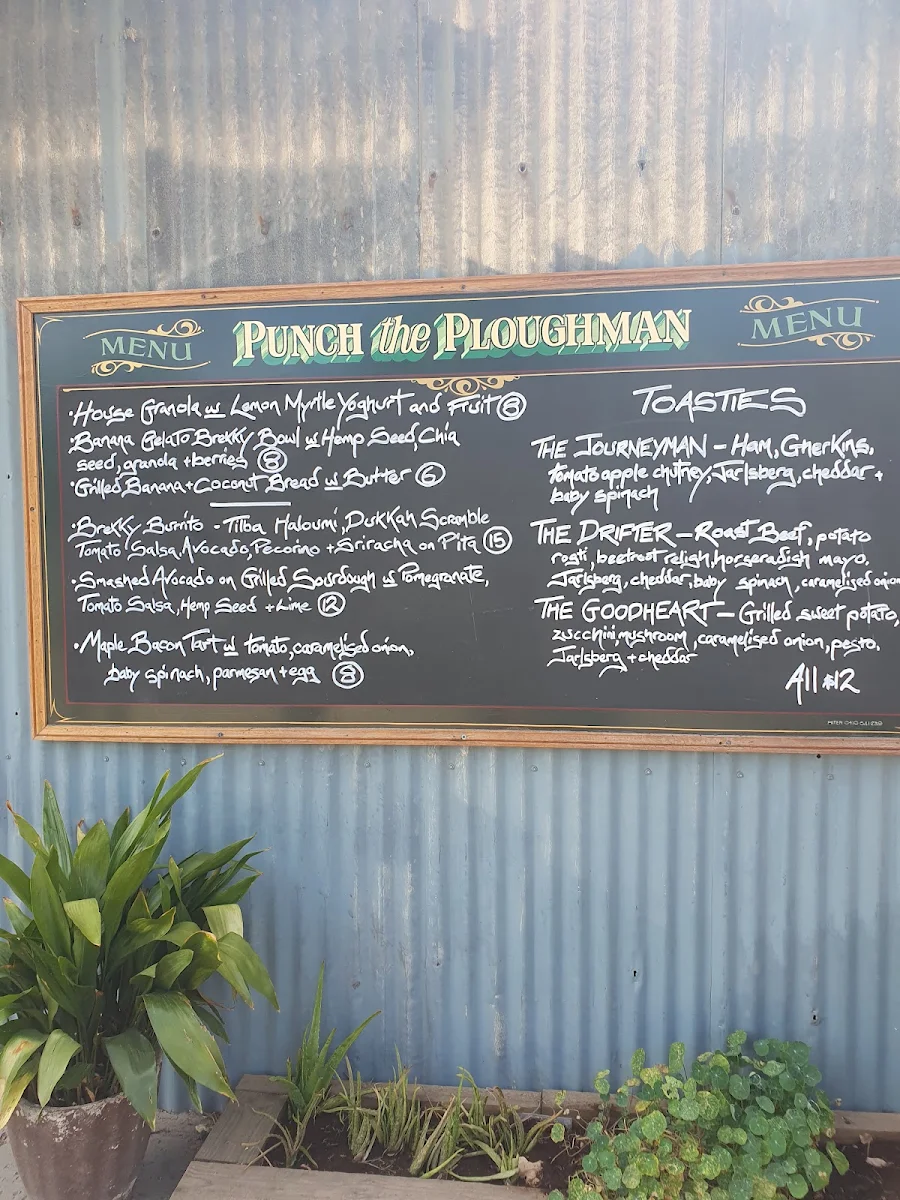 MENU
PUNCH the PLOUGHMAN
MENU
·House Granola w Lemon Myrtle Yoghurt and Fruit 8
·Banana Gelato Brekky Bowl w Hemp Seed, Chia
seed, granola + berries 8
·Grilled Banana + Coconut Bread w Butter 6
·Brekky Burrito - Tilba Haloumi, Dukkah Scramble
Tomato Salsa, Avocado, Pecorino + Sriracha on Pita 15
·Smashed Avocado on Grilled Sourdough w Pomegranate,
Tomato Salsa, Hemp Seed + Lime 12
·Maple Bacon Tart w tomato, caramelised onion,
baby spinach, parmesan + egg 8
TOASTIES
THE JOURNEYMAN - Ham, Gherkins,
tomato apple chutney, Jarlsberg, cheddar +
baby spinach
THE DRIFTER - Roast Beef, potato
rosti, beetroot relish, horseradish mayo,
Jarlsberg, cheddar, baby spinach, caramelised onion
THE GOODHEART - Grilled sweet potato,
zucchini, mushroom, caramelised onion, pesto,
Jarlsberg + cheddar
All $12